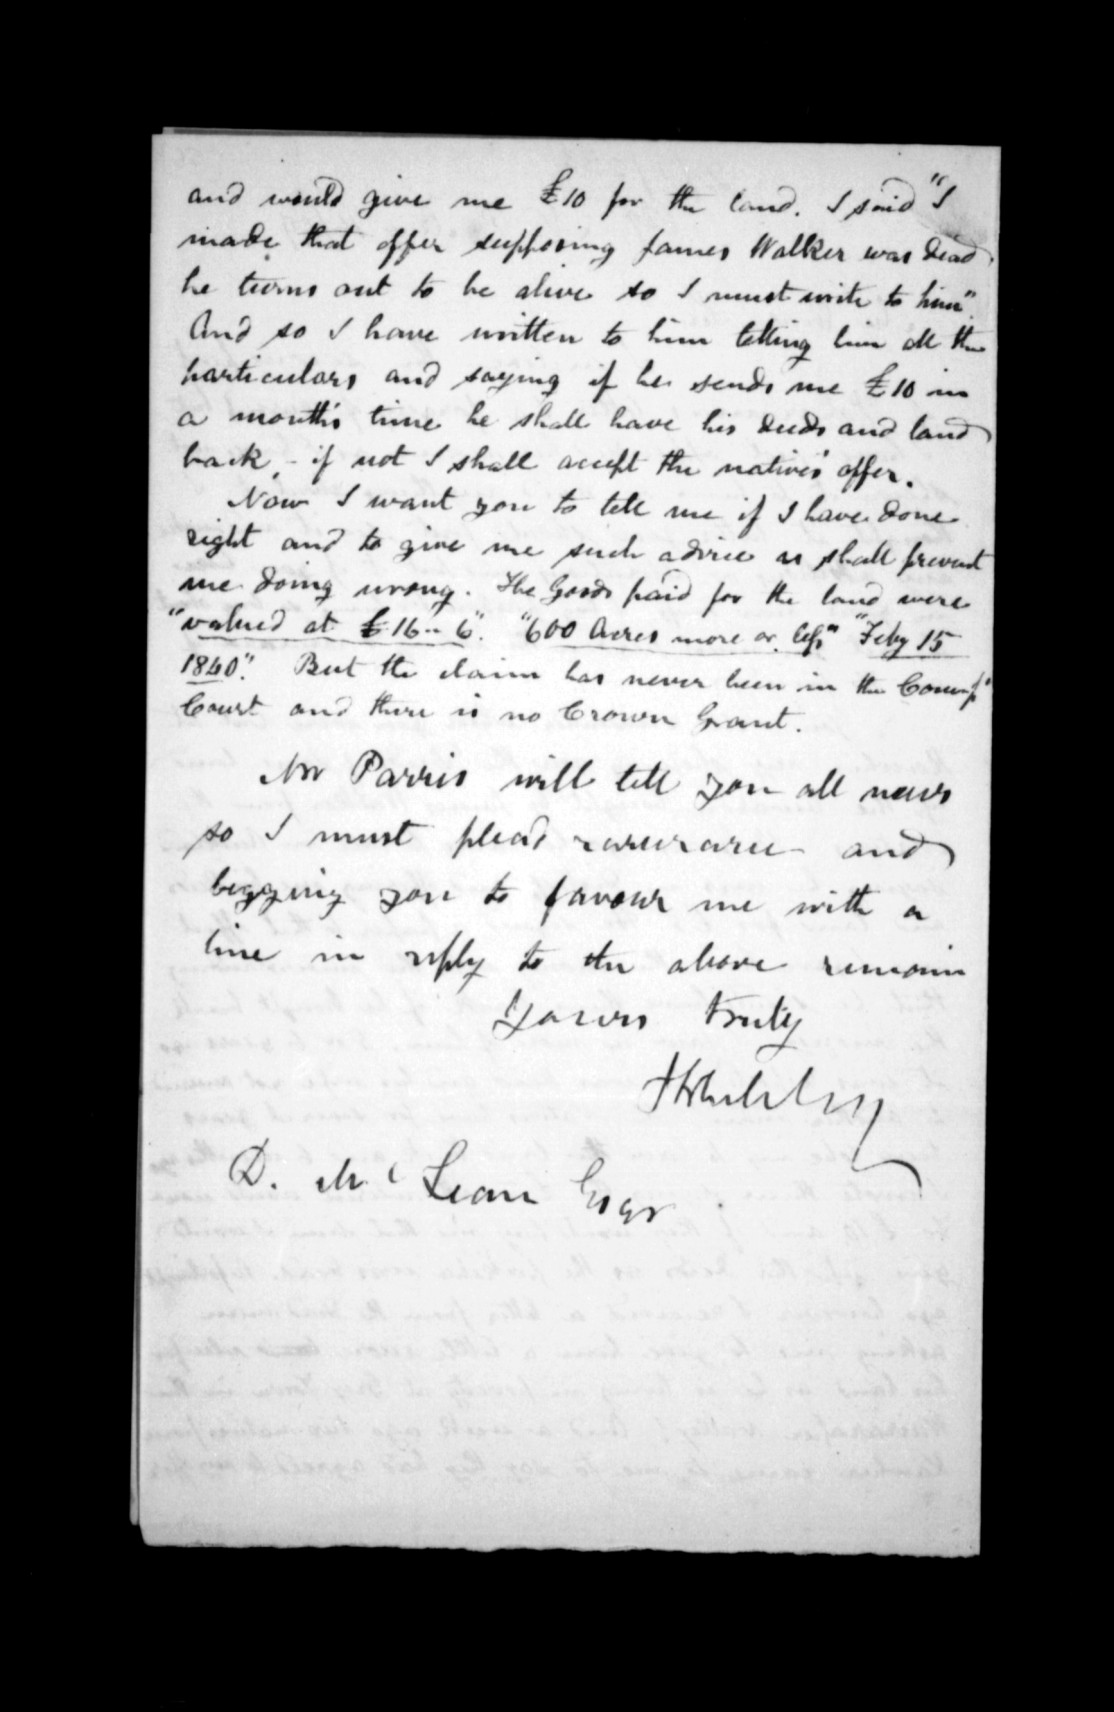 and would give me £10 for the land. I said "I
made that offer supposing James Walker was dead
he turns out to be alive so I must write to him".
And so I have written to him telling him all the
particulars and saying if he sends me £10 in
a month's time he shall have his deeds and land
back, - if not I shall accept the natives' offer.
Now I want you to tell me if I have done
right and to give me such advice as shall prevent
me doing wrong. The Goods paid for the land were
"valued at £16 - 6". "600 Acres more or less" "Feby 15
1840". But the claim has never been in the
Court and there is no Crown Grant.
Mr Parris will tell you all news
so I must plead and
begging you to favour me with a
line in reply to the above remain
Yours truly
D. McLean Esqr